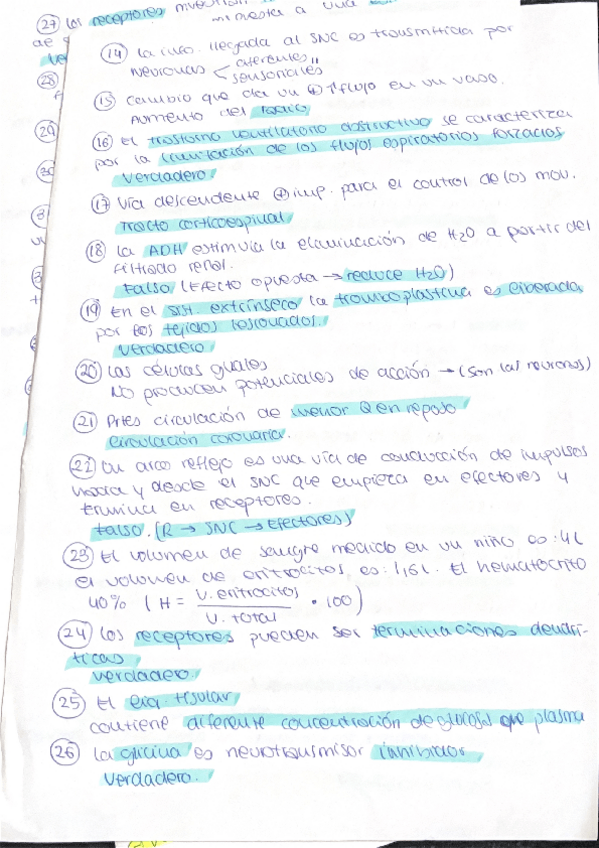 27 los receptores
de
14 la info. llegada al SNC es transmitida por
neuronas < aferentes
sensoriales"
15 Cambio que da un ⊕ ↑ flujo en un vaso.
Aumento del radio
16 El trastorno ventilatorio obstructivo se caracteriza
por la limitación de los flujos espiratorios forzados
Verdadero.
17 Vía descendente ⊕ imp. para el control de los mov.
Tracto corticoespinal
18 La ADH estimula la eliminación de H2O a partir del
filtrado renal.
Falso (Efecto opuesto → reduce H2O)
19 En el sist. extrínseco la tromboplastina es liberada
por los tejidos lesionados.
Verdadero
20 Las células gliales
No producen potenciales de acción → (son las neuronas)
21 Ptes circulación de menor Q en reposo
Circulación coronaria.
22 Un arco reflejo es una vía de conducción de impulsos
hacia y desde el SNC que empieza en efectores y
termina en receptores.
Falso. (R → SNC → Efectores)
23 El volumen de sangre medido en un niño es: 4L
el volumen de eritrocitos es: 1,6L. El hematocrito
40% ( H = V. eritrocitos / V. total · 100 )
24 Los receptores pueden ser terminaciones dendrí-
ticas
Verdadero.
25 El liq. tisular
contiene diferente concentración de glucosa que plasma
26 La glicina es neurotransmisor inhibidor
Verdadero.
28
29